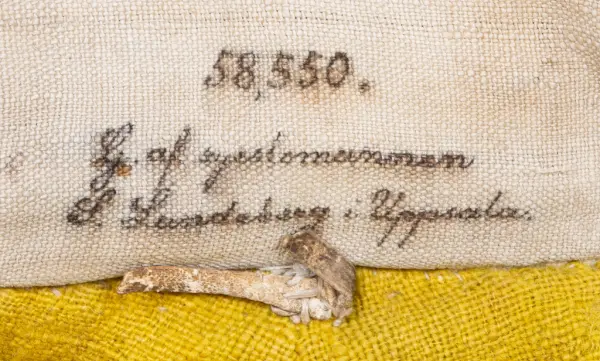 58,550.
Gj. af sysslomannen
S. Lundeberg i Uppsala.